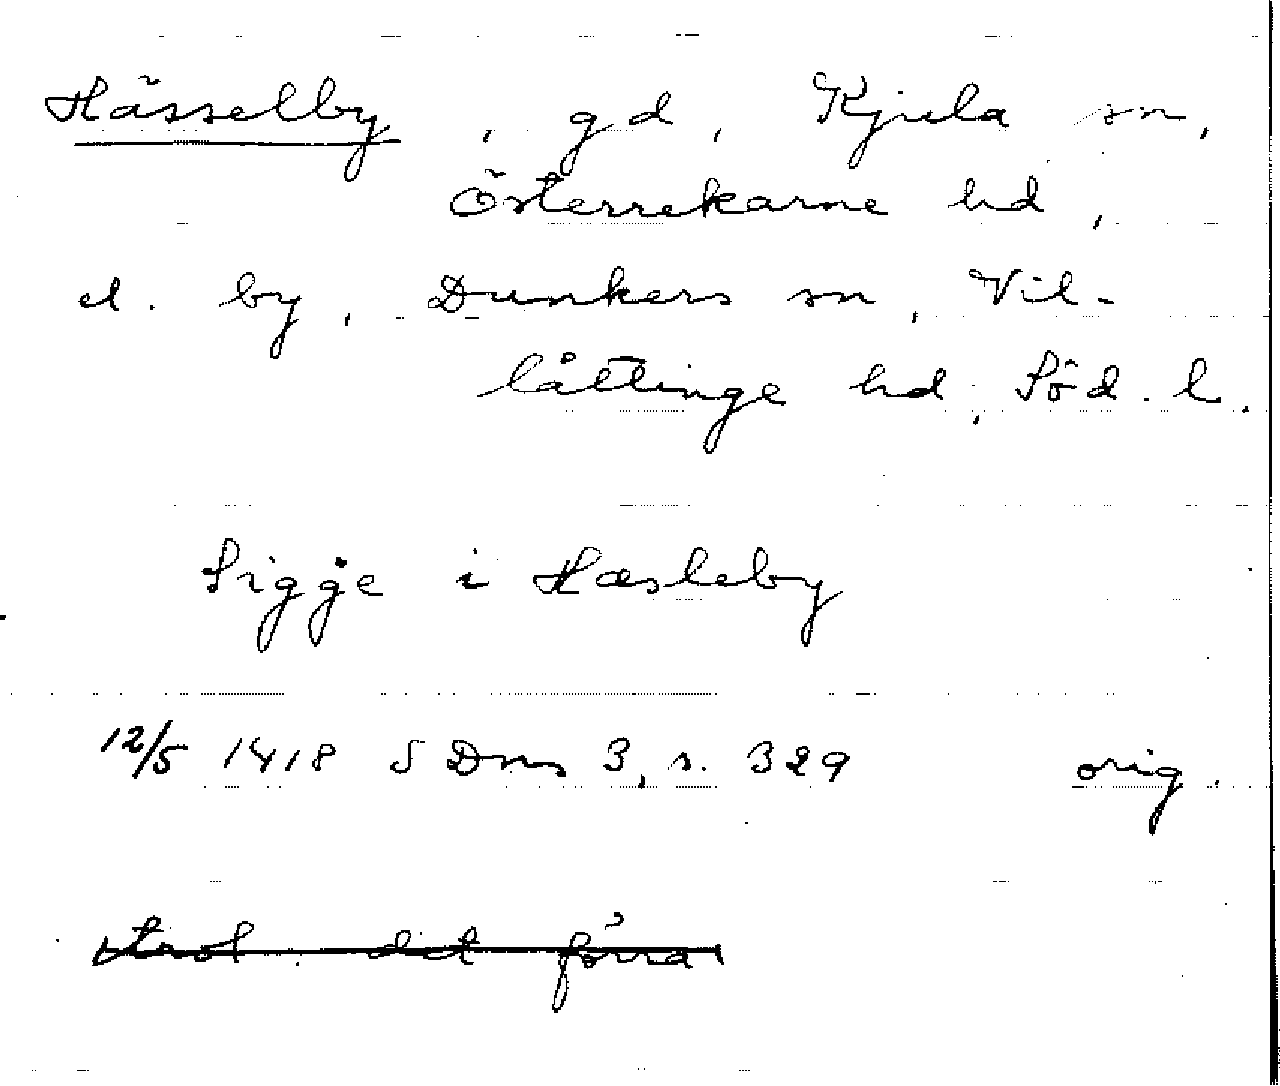 Hässelby, gd, Kjula sn,
Österrekarne hd,
el. by, Dunkers sn, Vil-
låttinge hd, Söd. l.
Sigge i Hæsleby
12/5 1418 S Dns 3, s. 329 orig.
trol. det förra